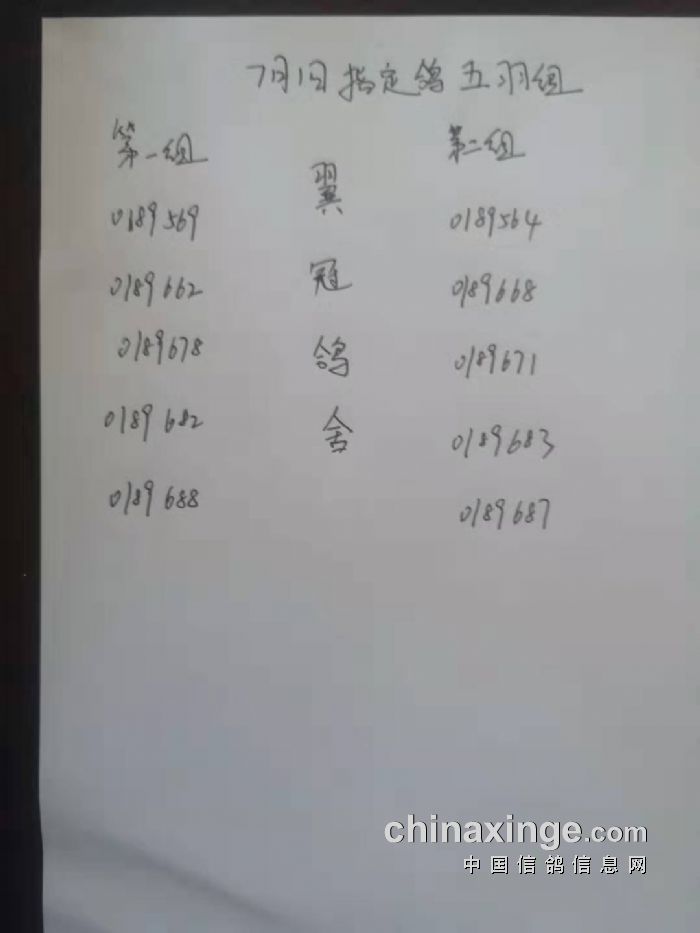 7月1日指定鸽五羽组
第一组
0189569
0189662
0189678
0189682
0189688
翼
冠
鸽
舍
第二组
0189564
0189668
0189671
0189683
0189687
chinaxinge.com
中国信鸽信息网